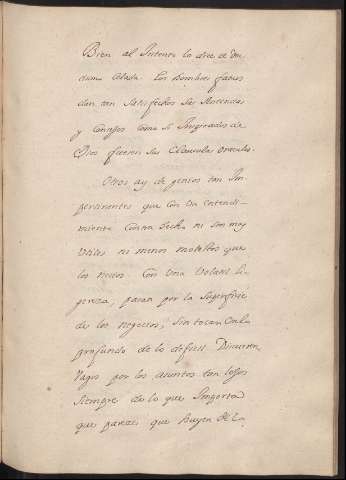 Bien al Intento lo dize
dam tan satisfechos sus sentencias
y Consejos como si Inspirados de
Dios fueran sus Clausulas oraculos.
Otros ay de genios tan Im
pertinentes que con un entendi
miento ni son muy
Utiles ni menos molestos que
los necios. Con una Volatil li
gereza, pasan por la Superficie
de los negocios, Sin tocar en lo
profundo de lo dificil. Discurren
Vagos por los asuntos tan lejos
siempre de lo que Importa
que pareze que huyen de lo